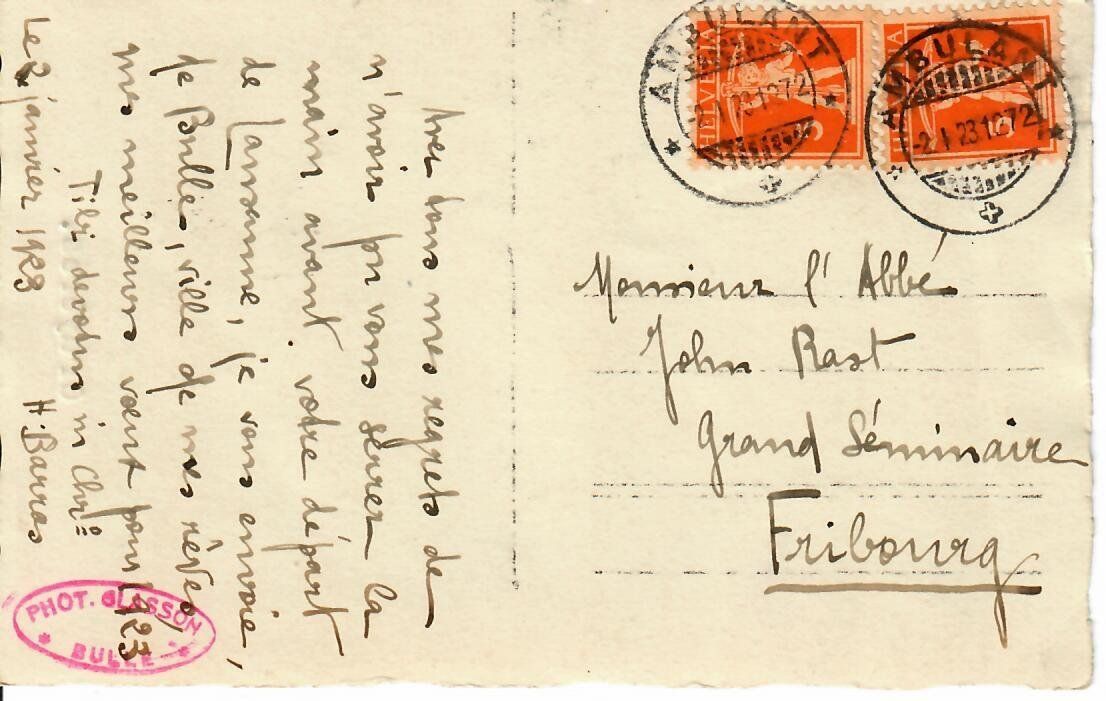 Avec tous mes regrets de
n'avoir pu vous serrer la
main avant votre départ
de Lausanne, je vous envoie,
de Bulle, ville de mes rêves,
mes meilleurs vœux pour 1923
Tibi devotus in Chr°
H. Barras
Le 2 janvier 1923
PHOT. GLASSON
BULLE
HELVETIA
HELVETIA
AMBULANT
-2.I.23.1272
AMBULANT
-2.I.23.1272
Monsieur l'Abbé
John Rast
Grand Séminaire
Fribourg